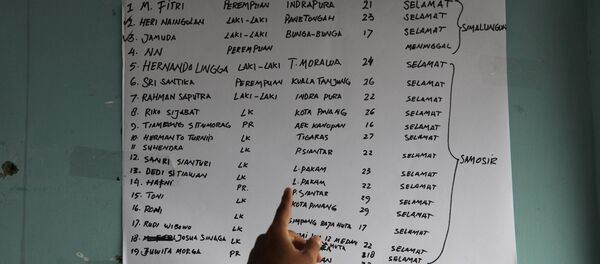 1 M. FITRI PEREMPUAN INDRAPURA 21 SELAMAT
2. HERI NAINGOLAN LAKI-LAKI PANETONGAH 23 SELAMAT
3. JAMUDA LAKI-LAKI BUNGA-BUNGA 17 SELAMAT
SIMALUNGUN
4. NN PEREMPUAN MENINGGAL
5 HERNANDO LINGGA LAKI-LAKI T. MORAWA 24 SELAMAT
6. SRI SANTIKA PEREMPUAN KUALA TANJUNG 26 SELAMAT
7. RAHMAN SAPUTRA LAKI-LAKI INDRA PURA 22 SELAMAT
8. RIKO SIJABAT LK KOTA PINANG 26 SELAMAT
9. TIAMBONG SITINMORAG PR AEK KANOPAN 16 SELAMAT
10. HERMANTO TURNIP LK TIGARAS 27 SELAMAT
11 SUHENDRA LK P.SIANTAR 22 SELAMAT
SAMOSIR
12. SANRI SIANTURI LK L. PAKAM 23 SELAMAT
13. DEDI SITIAWAN LK L. PAKAM 22 SELAMAT
14. HAFNI PR. P. SIANTAR 29 SELAMAT
15. TONI LK KOTA PINANG 29 SELAMAT
16. RONI LK
17. RUDI WIBOWO LK RAJA HUTA 17 SELAMAT
18. JOSUA SINAGA LK 12 MEDAN 22 SELAMAT
19. JUWITA MORGA PR 18 SELAMAT